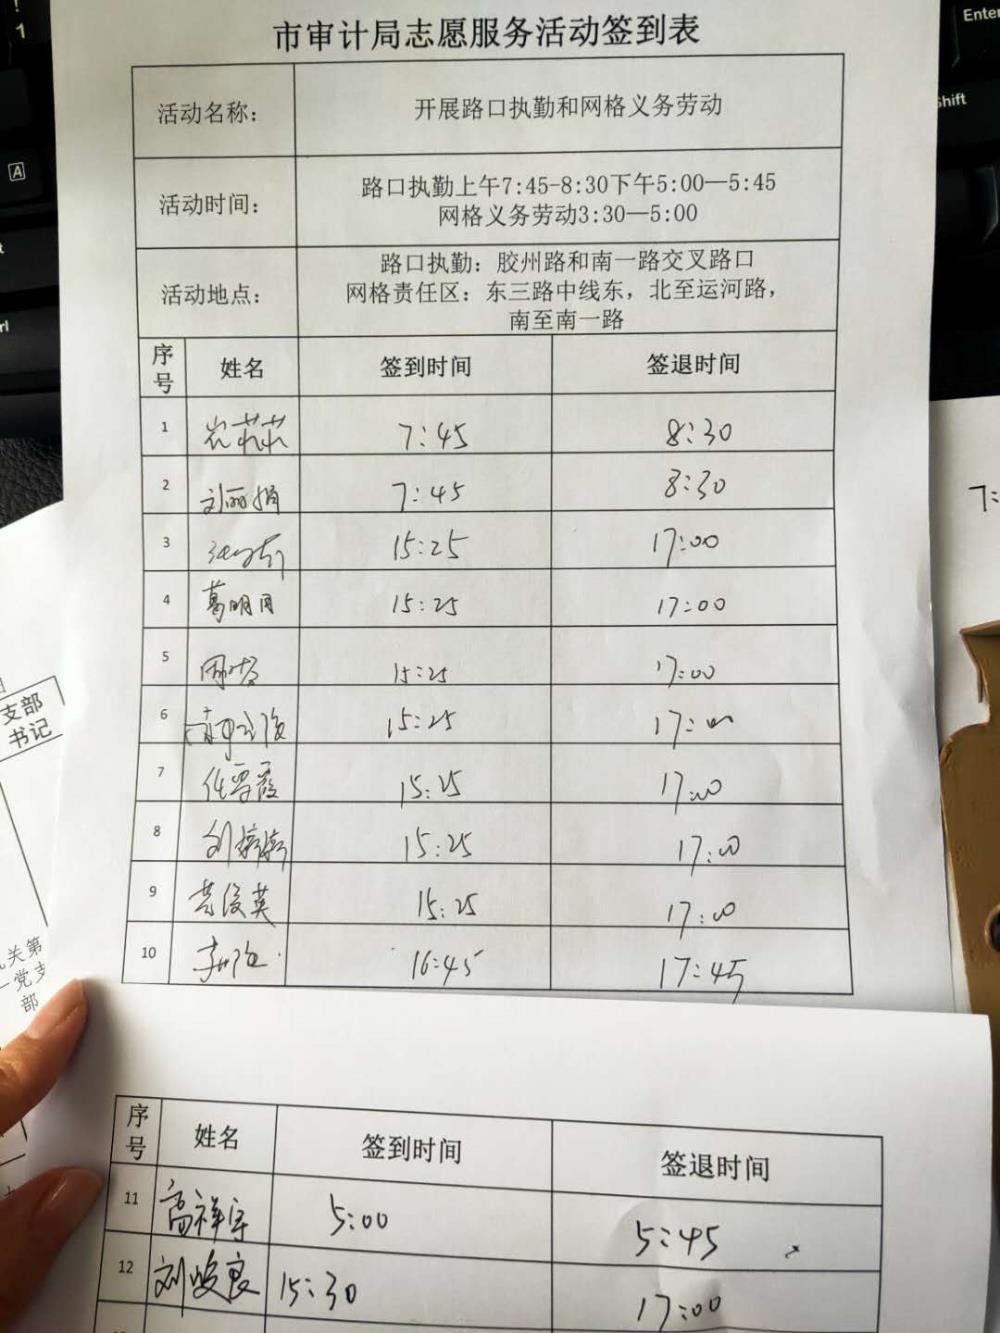 市审计局志愿服务活动签到表
活动名称：
开展路口执勤和网格义务劳动
活动时间：
路口执勤上午7:45-8:30下午5:00—5:45
网格义务劳动3:30—5:00
活动地点：
路口执勤：胶州路和南一路交叉路口
网格责任区：东三路中线东，北至运河路，
南至南一路
序号 姓名 签到时间 签退时间
1 7:45 8:30
2 刘丽娟 7:45 8:30
3 15:25 17:00
4 葛明月 15:25 17:00
5 15:25 17:00
6 15:25 17:00
7 任雪霞 15:25 17:00
8 刘婷婷 15:25 17:00
9 15:25 17:00
10 16:45 17:45
序号 姓名 签到时间 签退时间
11 高祥宇 5:00 5:45
12 刘峻良 15:30 17:00
支部
书记
关第
一党支
部
7:
!
1
A
Enter
Shift